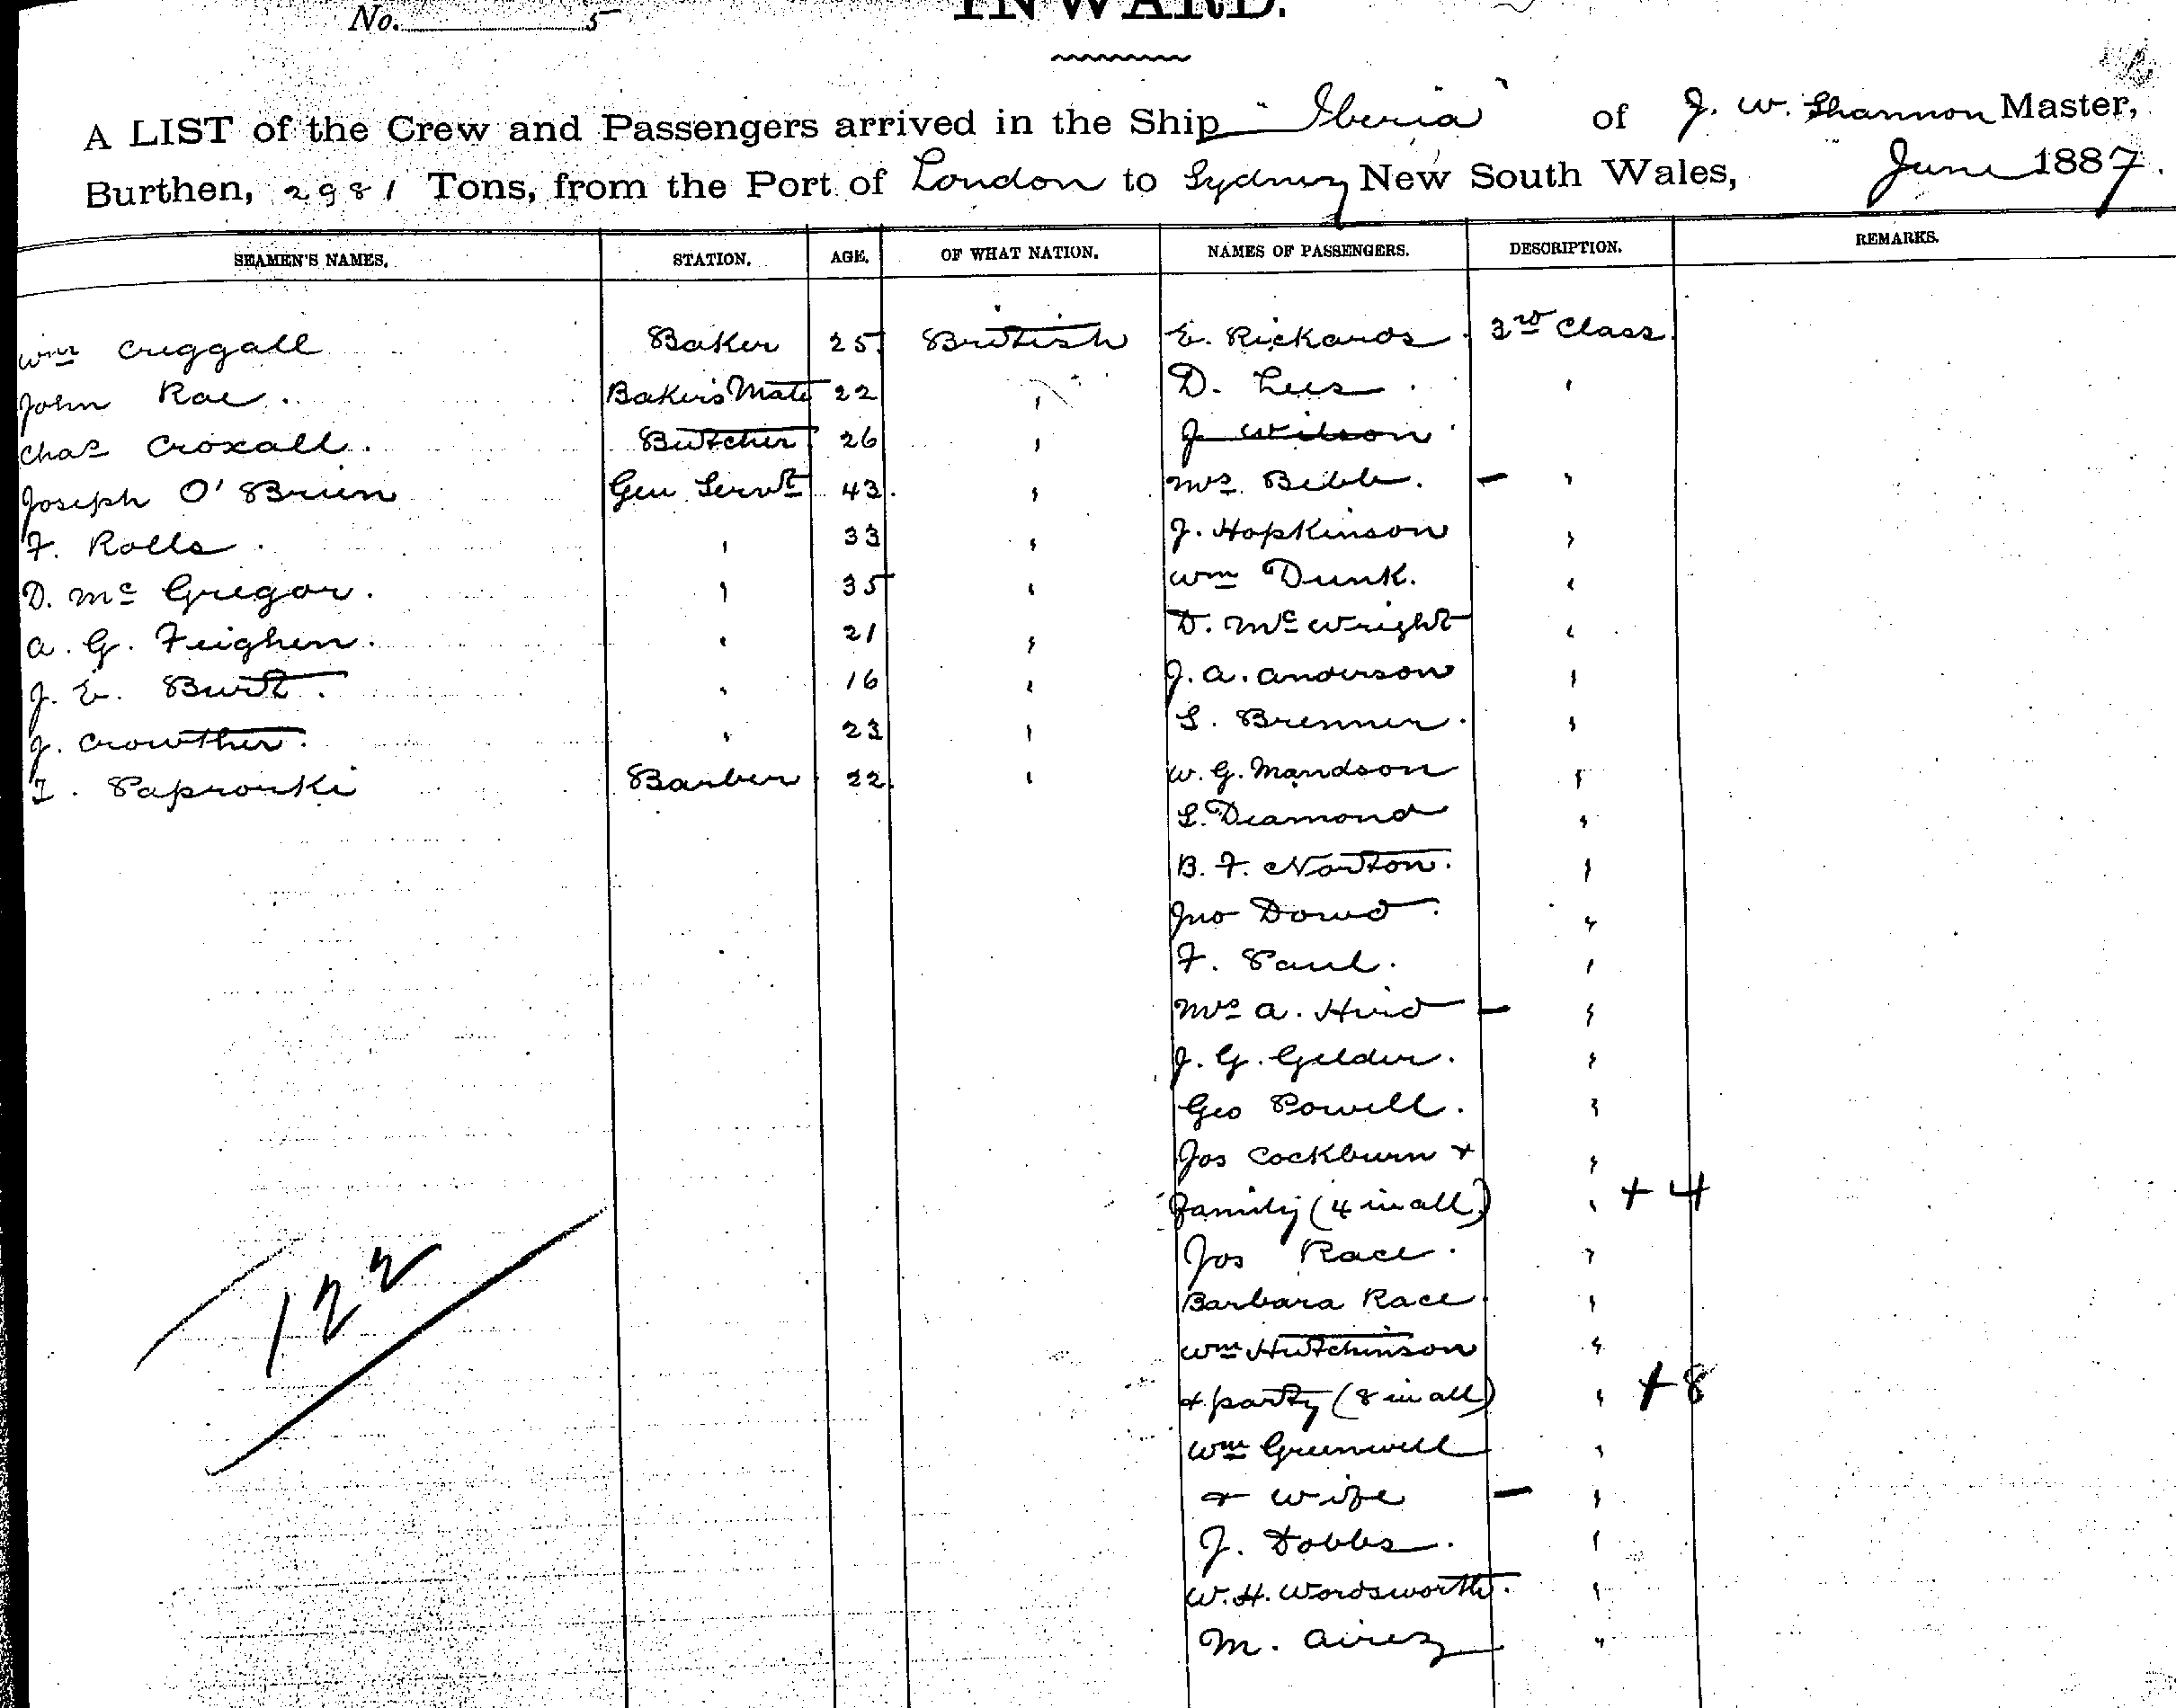 No. 5
INWARD.
A LIST of the Crew and Passengers arrived in the Ship "Iberia" of J. W. Shannon Master,
Burthen, 2981 Tons, from the Port of London to Sydney New South Wales, June 1887.
SEAMEN'S NAMES. STATION. AGE. OF WHAT NATION. NAMES OF PASSENGERS. DESCRIPTION. REMARKS.
Wm Creggall Baker 25 British E. Rickards 3rd Class
John Rae. Baker's Mate 22 " D. Lees "
Chas Croxall. Butcher 26 " J Wilson
Joseph O'Brien Gen Servt 43 " Mrs Bibb. - "
F. Rolls " 33 " J. Hopkinson "
D. McGregor. " 35 " Wm Dunk. "
A. G. Feighen. " 21 " D. McWright "
J. E. Burt. " 16 " J. A. Anderson "
J. Crowther. " 23 " S. Brenner. "
I. Saprouki Barber 22 " W. G. Mandson "
L. Diamond "
B. F. Norton. "
Jno Dowd. "
F. Paul. "
Mrs A. Hird - "
J. G. Gelder. "
Geo Powell. "
Jos Cockburn + "
family (4 in all) " + 4
Jos Race. "
Barbara Race. "
Wm Hutchinson "
+ party (8 in all) " + 8
Wm Greenwell "
+ wife - "
J. Dobbs. "
W. H. Wordsworth. "
M. Airey "
122